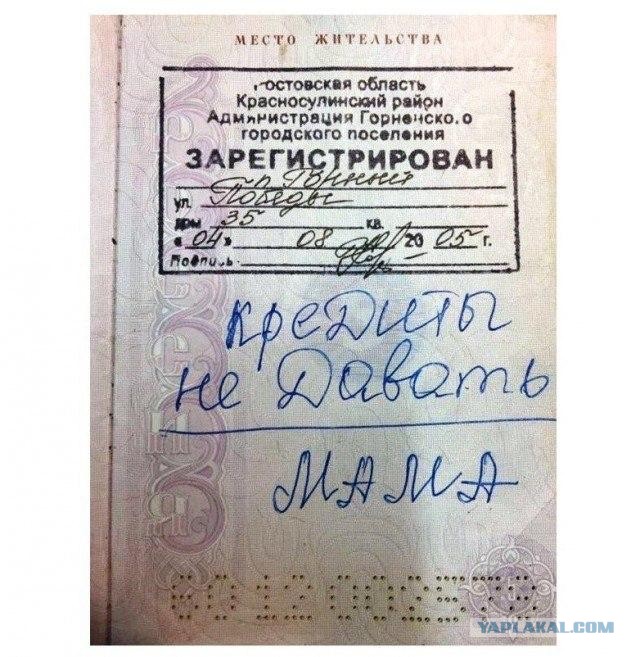 МЕСТО ЖИТЕЛЬСТВА
Ростовская область
Красносулинский район
Администрация Горненского
городского поселения
ЗАРЕГИСТРИРОВАН
п. Горный
ул. Победы
дом 35 кв.
« 04 » 08 20 05 г.
Подпись
кредиты
не Давать
МАМА
YAPLAKAL.COM